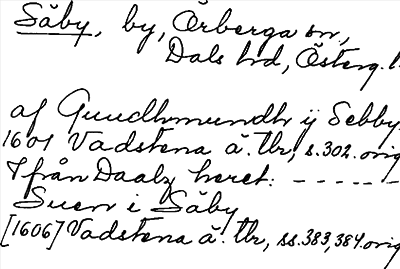 Säby, by, Örberga sn,
Dals hd, Österg. l
af Gundhmundh ij Sebby
1601 Vadstena ä. tbr, s. 302. orig
Ifrån Daalz heret: - - - - -
Suen i Säby
[1606] Vadstena ä. tbr, ss. 383, 384. orig